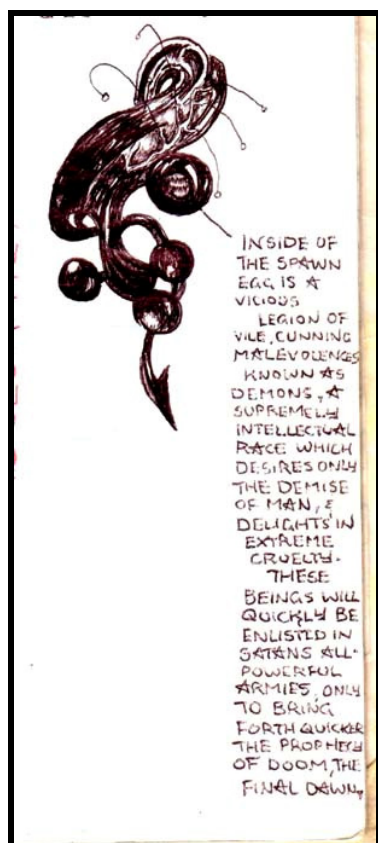 INSIDE OF
THE SPAWN
EGG IS A
VICIOUS
LEGION OF
VILE, CUNNING
MALEVOLENCES
KNOWN AS
DEMONS, A
SUPREMELY
INTELLECTUAL
RACE WHICH
DESIRES ONLY
THE DEMISE
OF MAN, &
DELIGHTS IN
EXTREME
CRUELTY.
THESE
BEINGS WILL
QUICKLY BE
ENLISTED IN
SATANS ALL-
POWERFUL
ARMIES, ONLY
TO BRING
FORTH QUICKER
THE PROPHECY
OF DOOM, THE
FINAL DAWN,